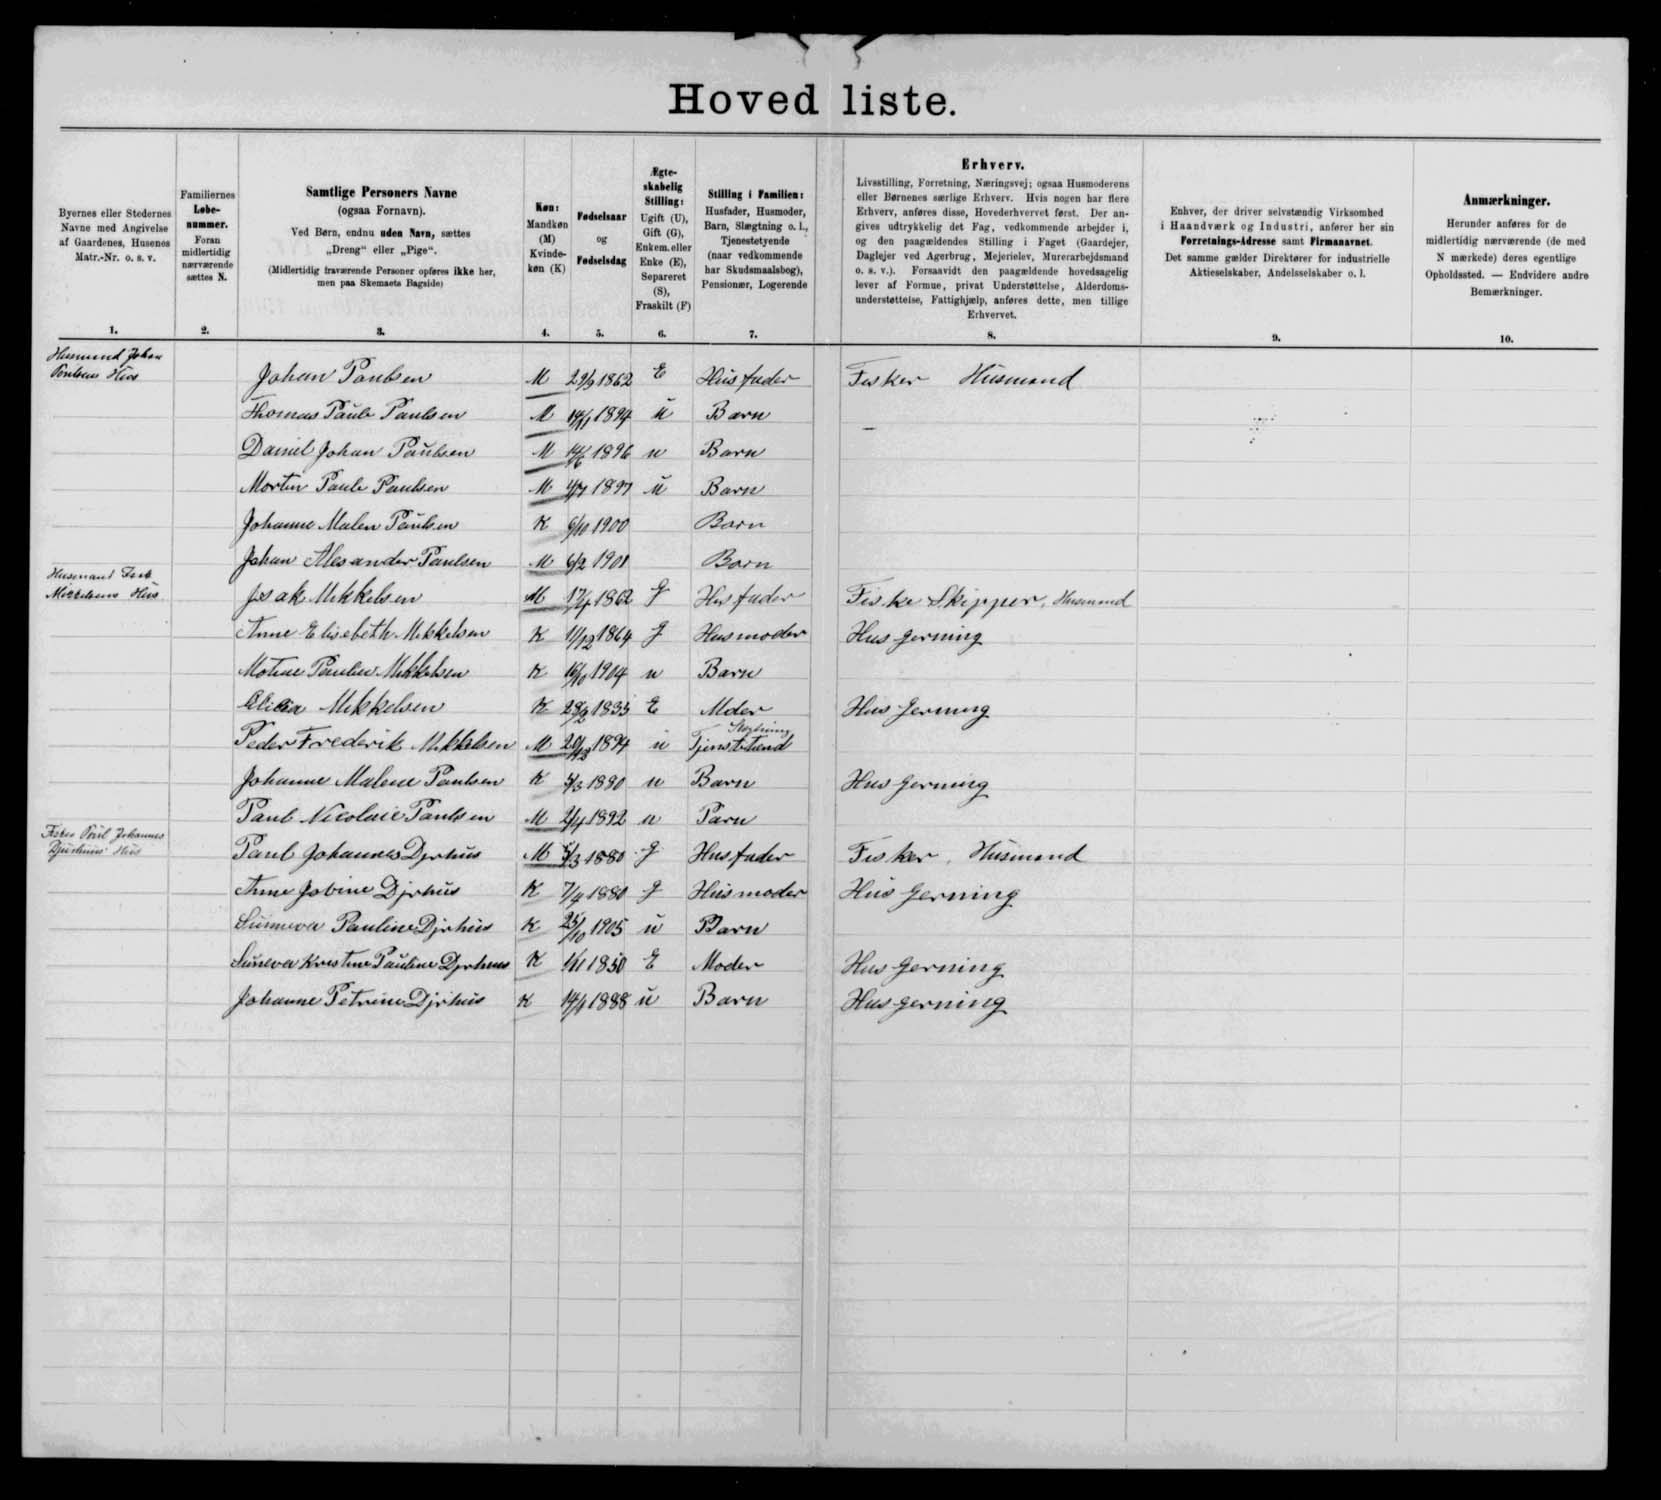 Hovedliste.
Byernes eller Stedernes
Navne med Angivelse
af Gaardenes, Husenes
Matr.-Nr. o. s. v.
1.
Familiernes
Løbe-
nummer.
Foran
midlertidig
nærværende
sættes N.
2.
Samtlige Personers Navne
(ogsaa Fornavn).
Ved Børn, endnu uden Navn, sættes
„Dreng“ eller „Pige“.
(Midlertidig fraværende Personer opføres ikke her,
men paa Skemaets Bagside)
3.
Køn:
Mandkøn
(M)
Kvinde-
køn (K)
4.
Fødselsaar
og
Fødselsdag
5.
Ægte-
skabelig
Stilling:
Ugift (U),
Gift (G),
Enkem. eller
Enke (E),
Separeret
(S),
Fraskilt (F)
6.
Stilling i Familien:
Husfader, Husmoder,
Barn, Slægtning o. l.,
Tjenestetyende
(naar vedkommende
har Skudsmaalsbog),
Pensionær, Logerende
7.
Erhverv.
Livsstilling, Forretning, Næringsvej; ogsaa Husmoderens
eller Børnenes særlige Erhverv. Hvis nogen har flere
Erhverv, anføres disse, Hovederhvervet først. Der an-
gives udtrykkelig det Fag, vedkommende arbejder i,
og den paagældendes Stilling i Faget (Gaardejer,
Daglejer ved Agerbrug, Mejerielev, Murerarbejdsmand
o. s. v.). Forsaavidt den paagældende hovedsagelig
lever af Formue, privat Understøttelse, Alderdoms-
understøttelse, Fattighjælp, anføres dette, men tillige
Erhvervet.
8.
Enhver, der driver selvstændig Virksomhed
i Haandværk og Industri, anfører her sin
Forretnings-Adresse samt Firmanavnet.
Det samme gælder Direktører for industrielle
Aktieselskaber, Andelsselskaber o. l.
9.
Anmærkninger.
Herunder anføres for de
midlertidig nærværende (de med
N mærkede) deres egentlige
Opholdssted. — Endvidere andre
Bemærkninger.
10.
Husmand Johan
Poulsens Hus
Johan Paulsen M 29/9 1862 E Husfader Fisker Husmand
Thomas Paule Paulsen M 14/11 1894 u Barn
Daniel Johan Paulsen M 14/6 1896 u Barn
Morten Paule Paulsen M 4/7 1897 u Barn
Johanne Malen Paulsen K 6/10 1900 Barn
Johan Alexander Paulsen M 6/2 1901 Barn
Husmand Isak
Mikkelsens Hus
Isak Mikkelsen M 17/4 1862 g Husfader Fiske Skipper, Husmand
Anne Elisebeth Mikkelsen K 11/12 1864 g Husmoder Husgerning
Motine Pauline Mikkelsen K 16/10 1904 u Barn
Elicia Mikkelsen K 28/2 1835 E Moder Husgerning
Peder Frederik Mikkelsen M 20/12 1894 u Tjenstetiend
Johanne Malene Paulsen K 5/3 1880 u Barn Husgerning
Paul Nicolaie Paulsen M 2/4 1892 u Barn
Fisker Poul Johannes
Djurhuus Hus
Paul Johannes Djrhus M 5/3 1880 g Husfader Fisker, Husmand
Anne Jovine Djrhus K 7/4 1880 g Husmoder Husgerning
Sunneva Pauline Djrhus K 25/10 1905 u Barn
Suneva Kristine Pauline Djrhus K 1/11 1850 E Moder Husgerning
Johanne Petrine Djrhus K 14/9 1888 u Barn Husgerning